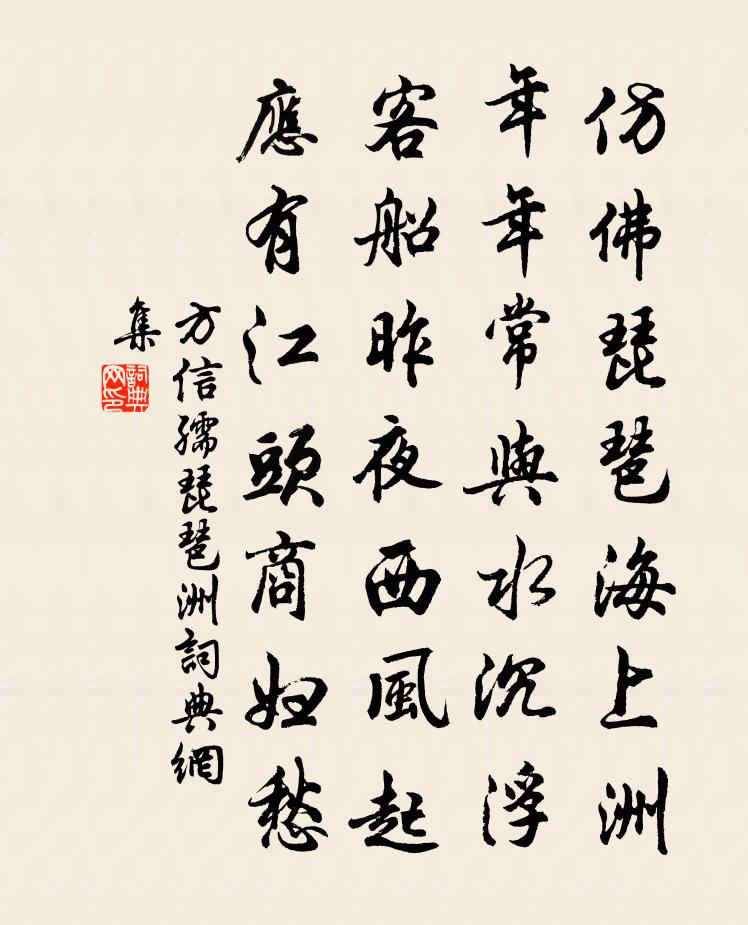 仿佛琵琶海上洲
年年常與水沉浮
客船昨夜西風起
應有江頭商婦愁
方信孺琵琶洲詞典網
集
詞典網印